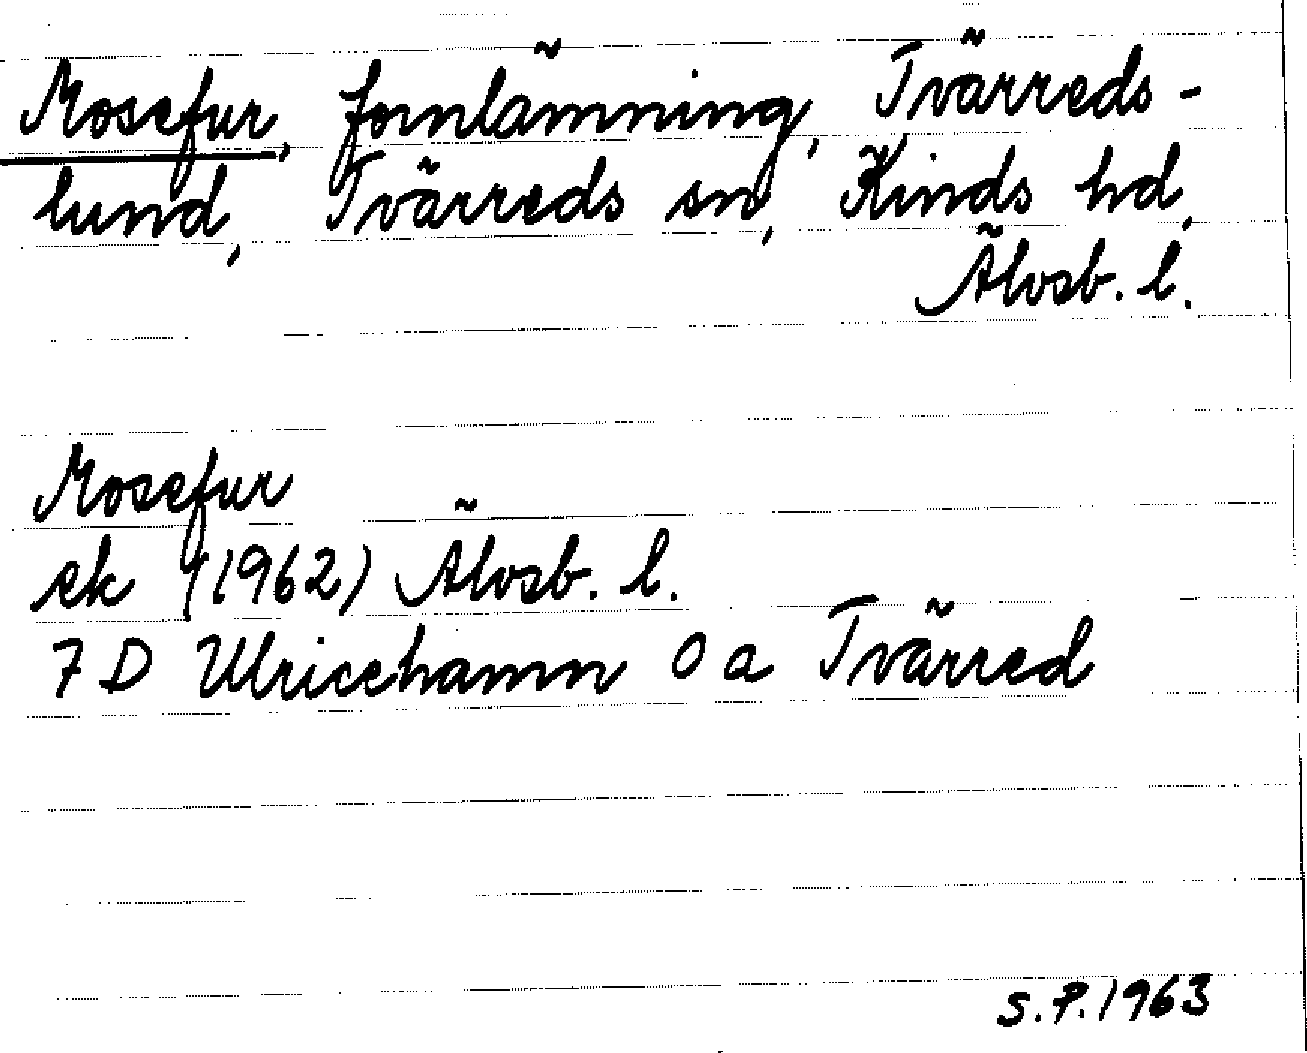 Mosefur, fornlämning, Tvärreds-
lund, Tvärreds sn, Kinds hd,
Älvsb. l.
Mosefur
ek (1962) Älvsb. l.
7 D Ulricehamn 0 a Tvärred
S.P. 1963